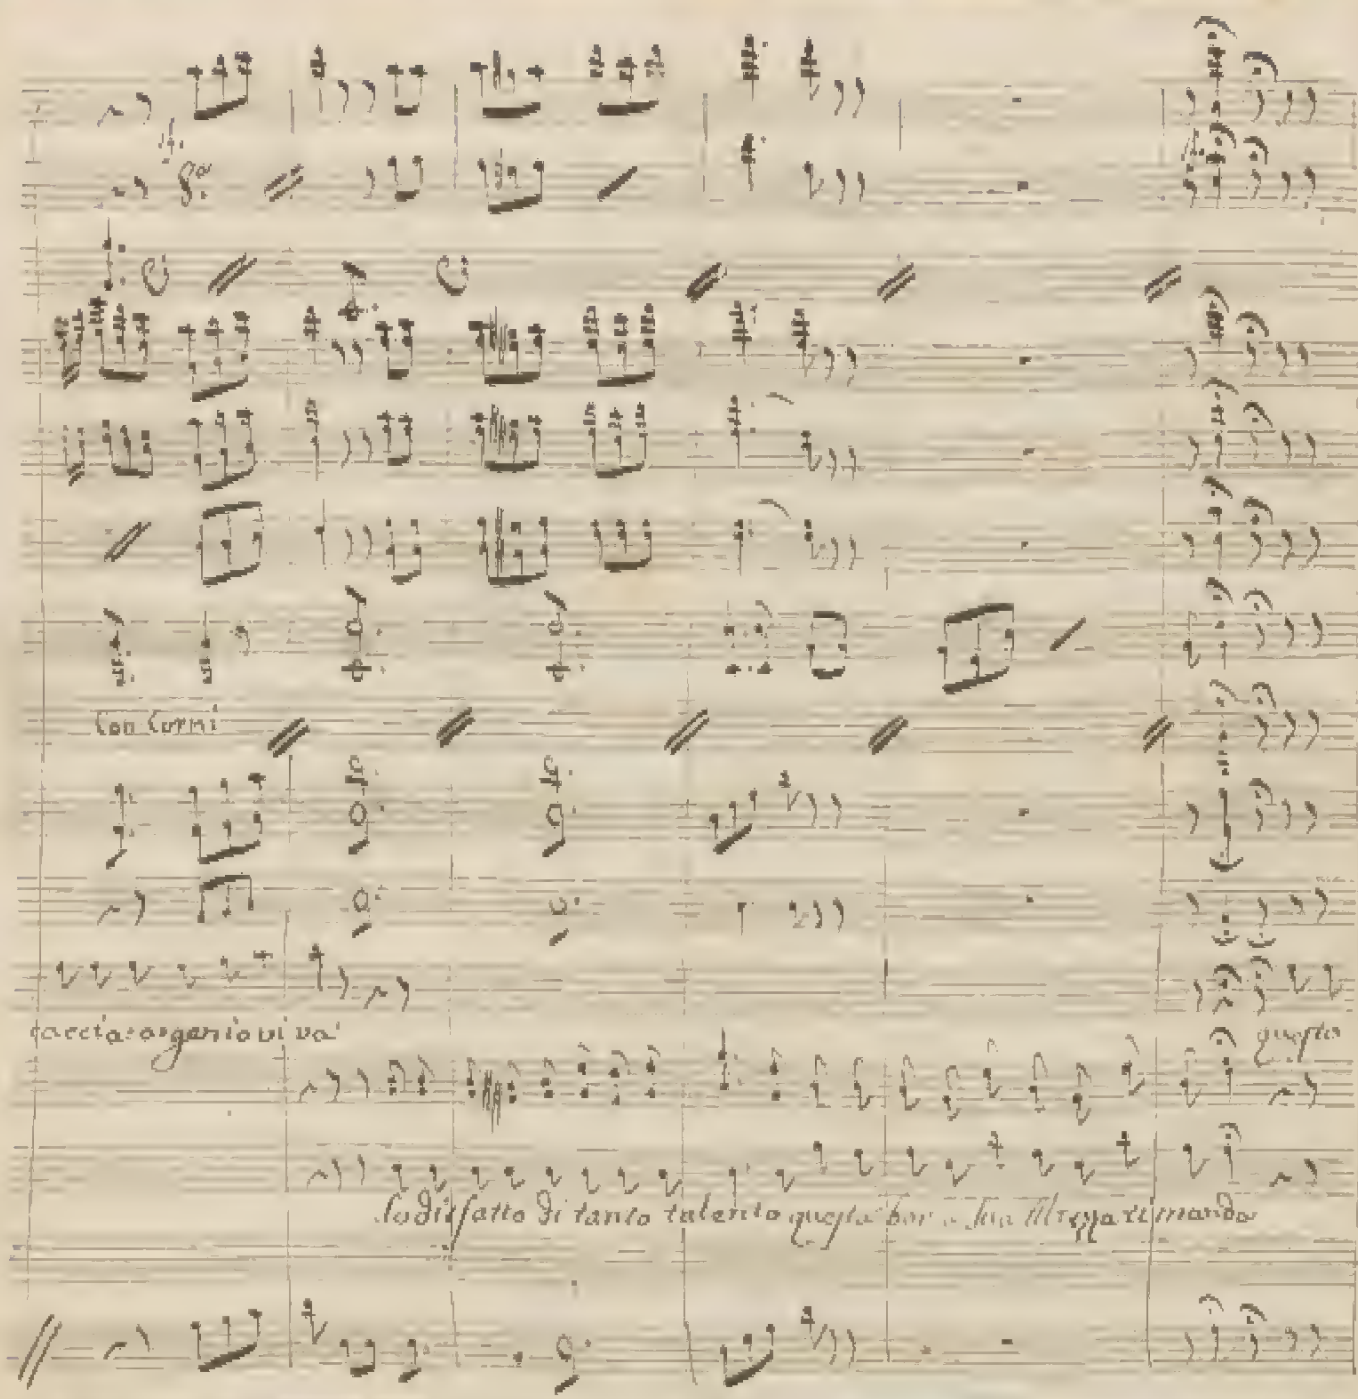 8.ª
Con Corni
caccia argento viva
questo
Sodisfatto di tanto talento questa bor a Sua Altezza rimanda